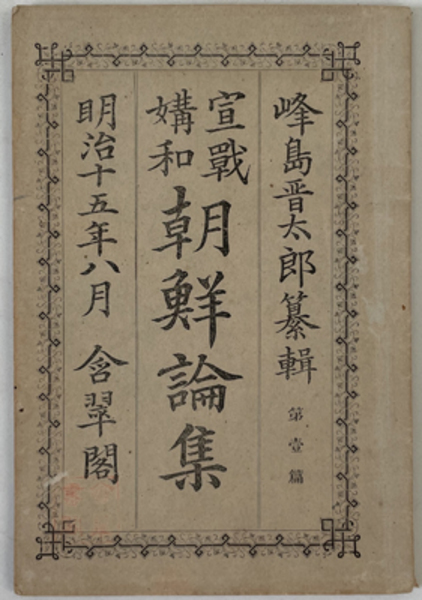 峰島晋太郎纂輯
第壹篇
宣戰
媾和
朝鮮論集
明治十五年八月 含翠閣